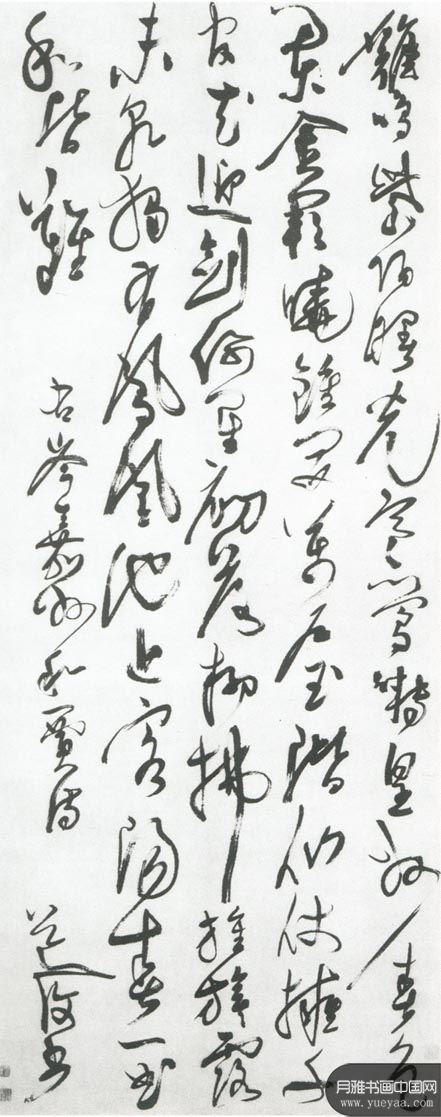 雞鳴紫陌曙光寒鶯囀皇州春色
闌金闕曉鐘開萬戶玉階仙仗擁千
官花迎劍佩星初落柳拂旌旗露
未乾獨有鳳凰池上客陽春一曲
和皆難 右岑嘉州和賈詩 道復書
月雅书画中国网
www.yueyaa.com